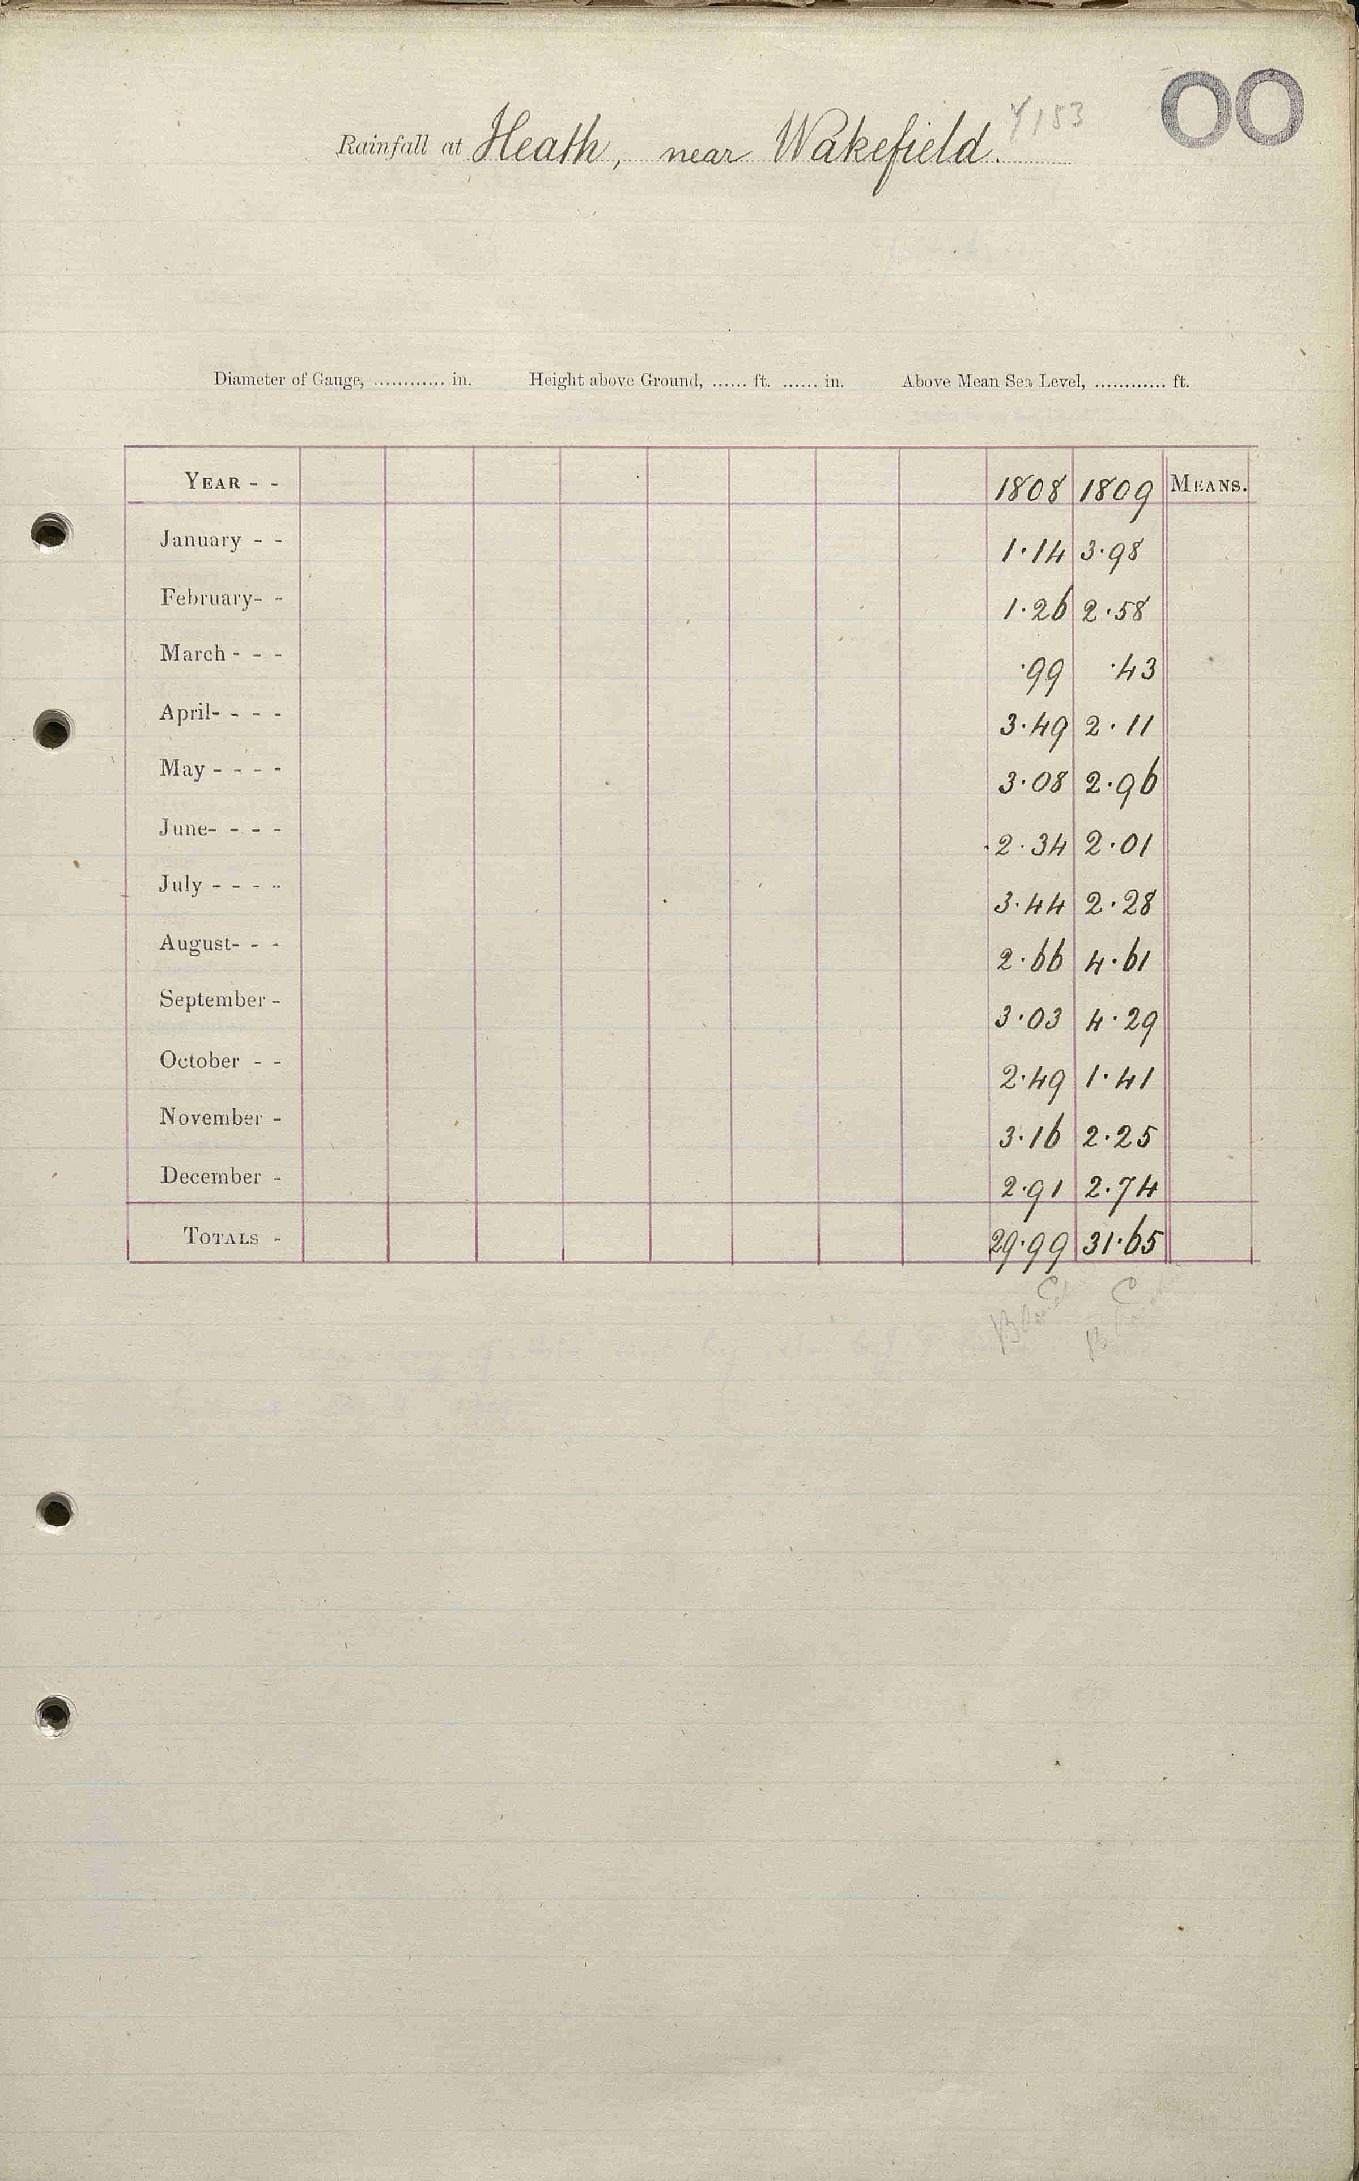 00
Y153
Rainfall at Heath, near Wakefield.
Diameter of Gauge, ............ in. Height above Ground, ...... ft. ...... in. Above Mean Sea Level, ............ ft.
YEAR - - 1808 1809 MEANS.
January - - 1.14 3.98
February- - 1.26 2.58
March - - - .99 .43
April- - - - 3.49 2.11
May - - - - 3.08 2.96
June- - - - 2.34 2.01
July - - - - 3.44 2.28
August- - - 2.66 4.61
September - 3.03 4.29
October - - 2.49 1.41
November - 3.16 2.25
December - 2.91 2.74
TOTALS - 29.99 31.65